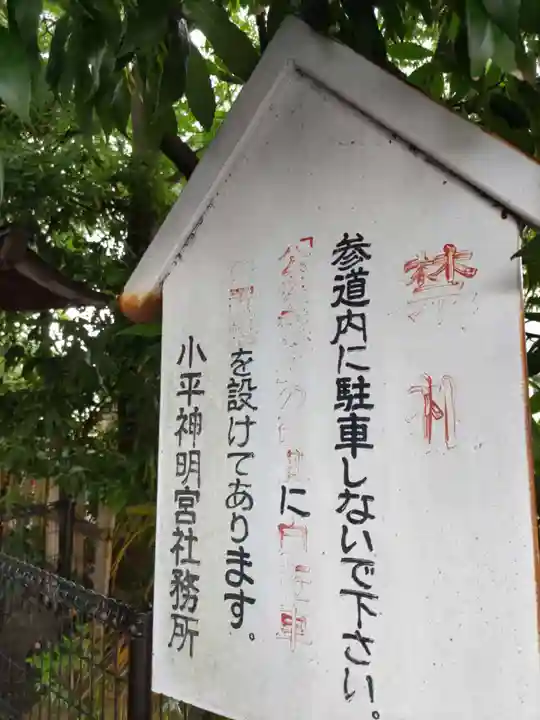 禁
参道内に駐車しないで下さい。
に自転車
を設けてあります。
小平神明宮社務所